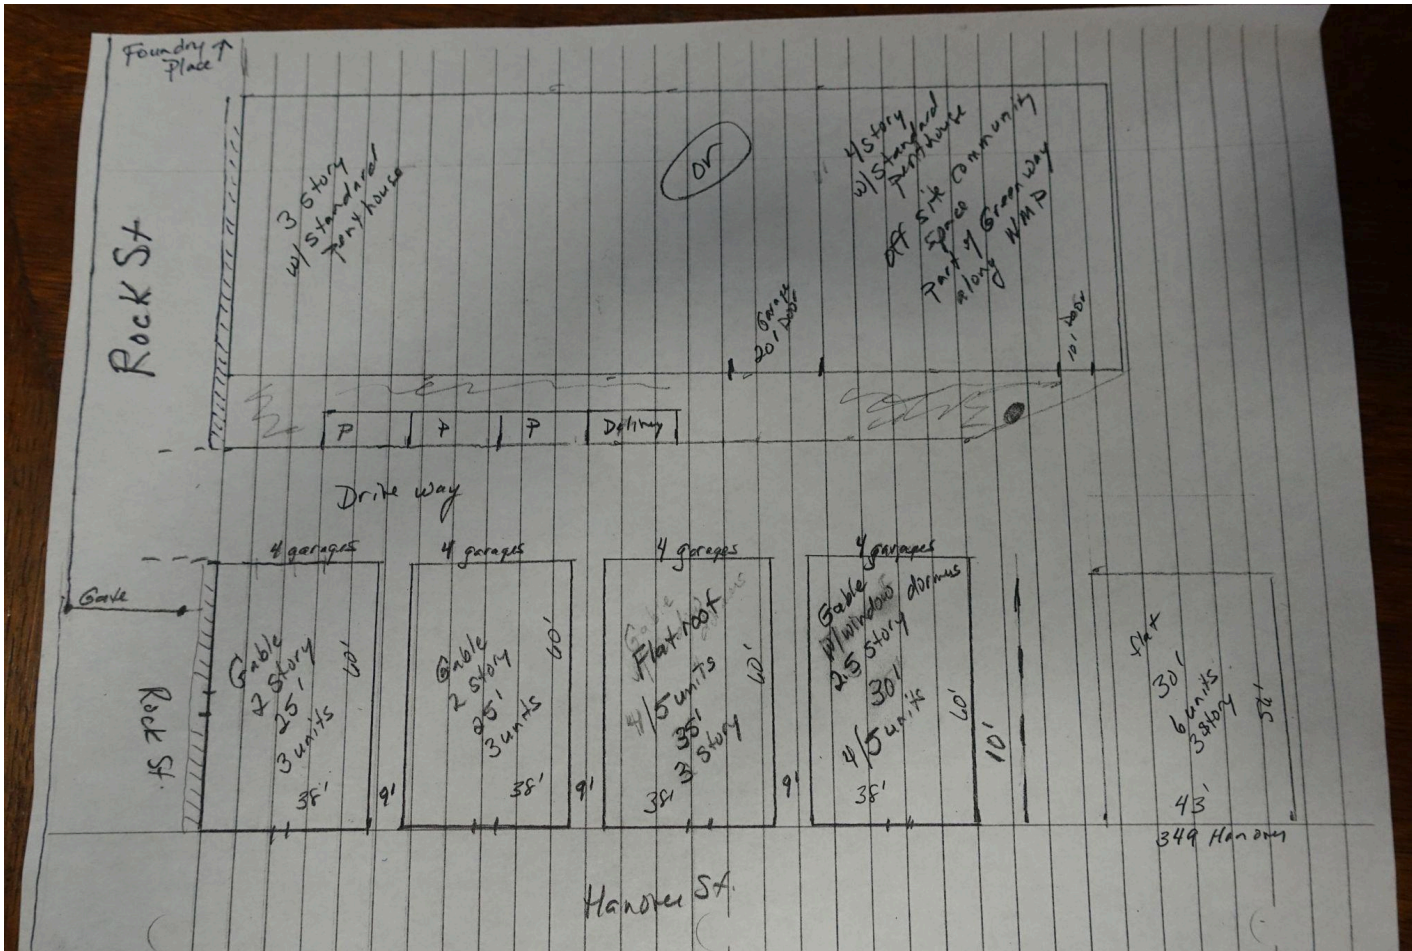 Foundry
Place
Rock St
3 Story
w/ standard
pent house
or
4 story
w/ standard
pent house
off site community
space
part of Green way
along NMP
Garage
20' Door
10' Door
P
P
P
Delivery
Drive way
4 garages
4 garages
4 garages
4 garages
Gate
Rock St
Gable
2 story
25'
3 units
60'
38'
9'
Gable
2 story
25'
3 units
60'
38'
9'
Flat roof
4/5 units
35'
3 story
60'
38'
9'
Gable
w/ window dormers
2.5 story
30'
4/5 units
60'
38'
10'
flat
30'
6 units
3 story
43'
349 Hanover
Hanover St.